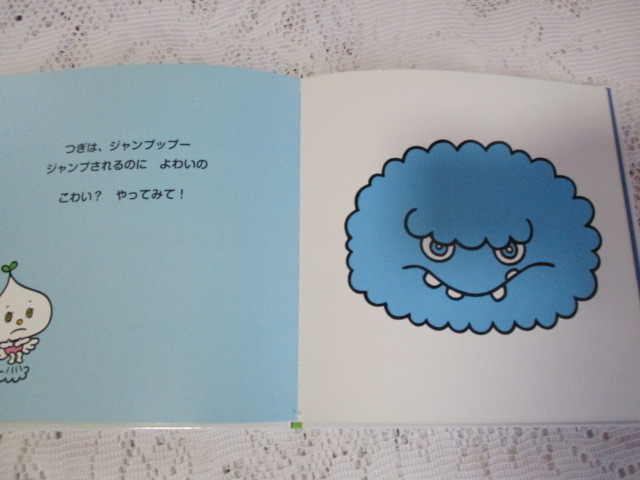 つぎは、ジャンプップー
ジャンプされるのに　よわいの
こわい？　やってみて！